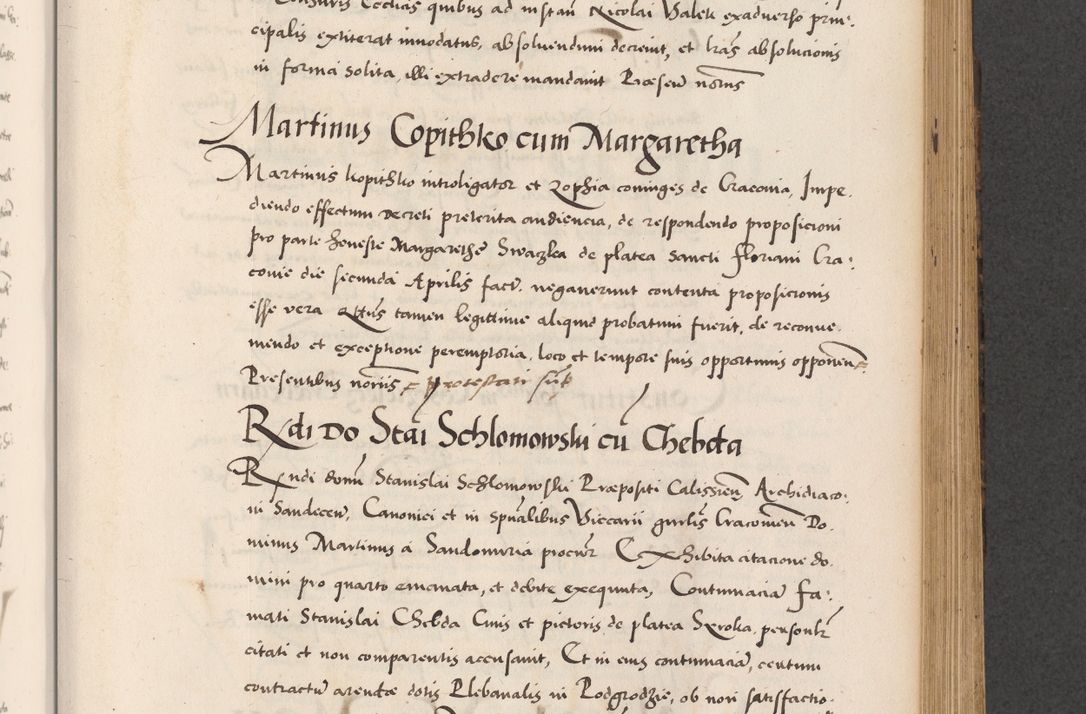 Censuris Ecclias quibus ad instan Nicolai Valek exadverso prin:
cipalis extiterat innodatus, absolvendum decrevit, et lras absolucionis
in forma solita, illi extradere mandavit Præsen notrys
Martinus Copithko cum Margaretha
Martinus kopithko introligator et Zophia coniuges de Cracovia, Impe.
diendo effectum decreti preterita audiencia, de respondendo proposicioni
pro parte honeste Margarethe Swaczka de platea sancti floriani Cra:
covie die secunda Aprilis fact. negaverunt contenta proposicionis
esse vera Qttus tamen legittime aliquid probatum fuerit, de reconve.
niendo et exceptione peremptoria, loco et tempore suis opportunis opponen
Presentibus notriis protestati sut
Rdi Do Stai Schlomowski cu Chebda
Rndi domi Stanislai Schlomowskii Præpositi Calissien, Archidiaco:
ni Sandecen, Canonici et in spualibus Viccarii gnrlis Cracovien Do.
minus Martinus a Sandomiria procur Exhibita citacione do.
mini pro quarto emanata, et debite exequuta, Contumacia fa:
mati Stanislai Chebda Civis et pictoris de platea Szroka, personlr
citati et non comparentis accusavit, Et in eius contumacia, centum
contractu arendæ dotis Plebanalis in Podgrodzie, ob non satisfactio.